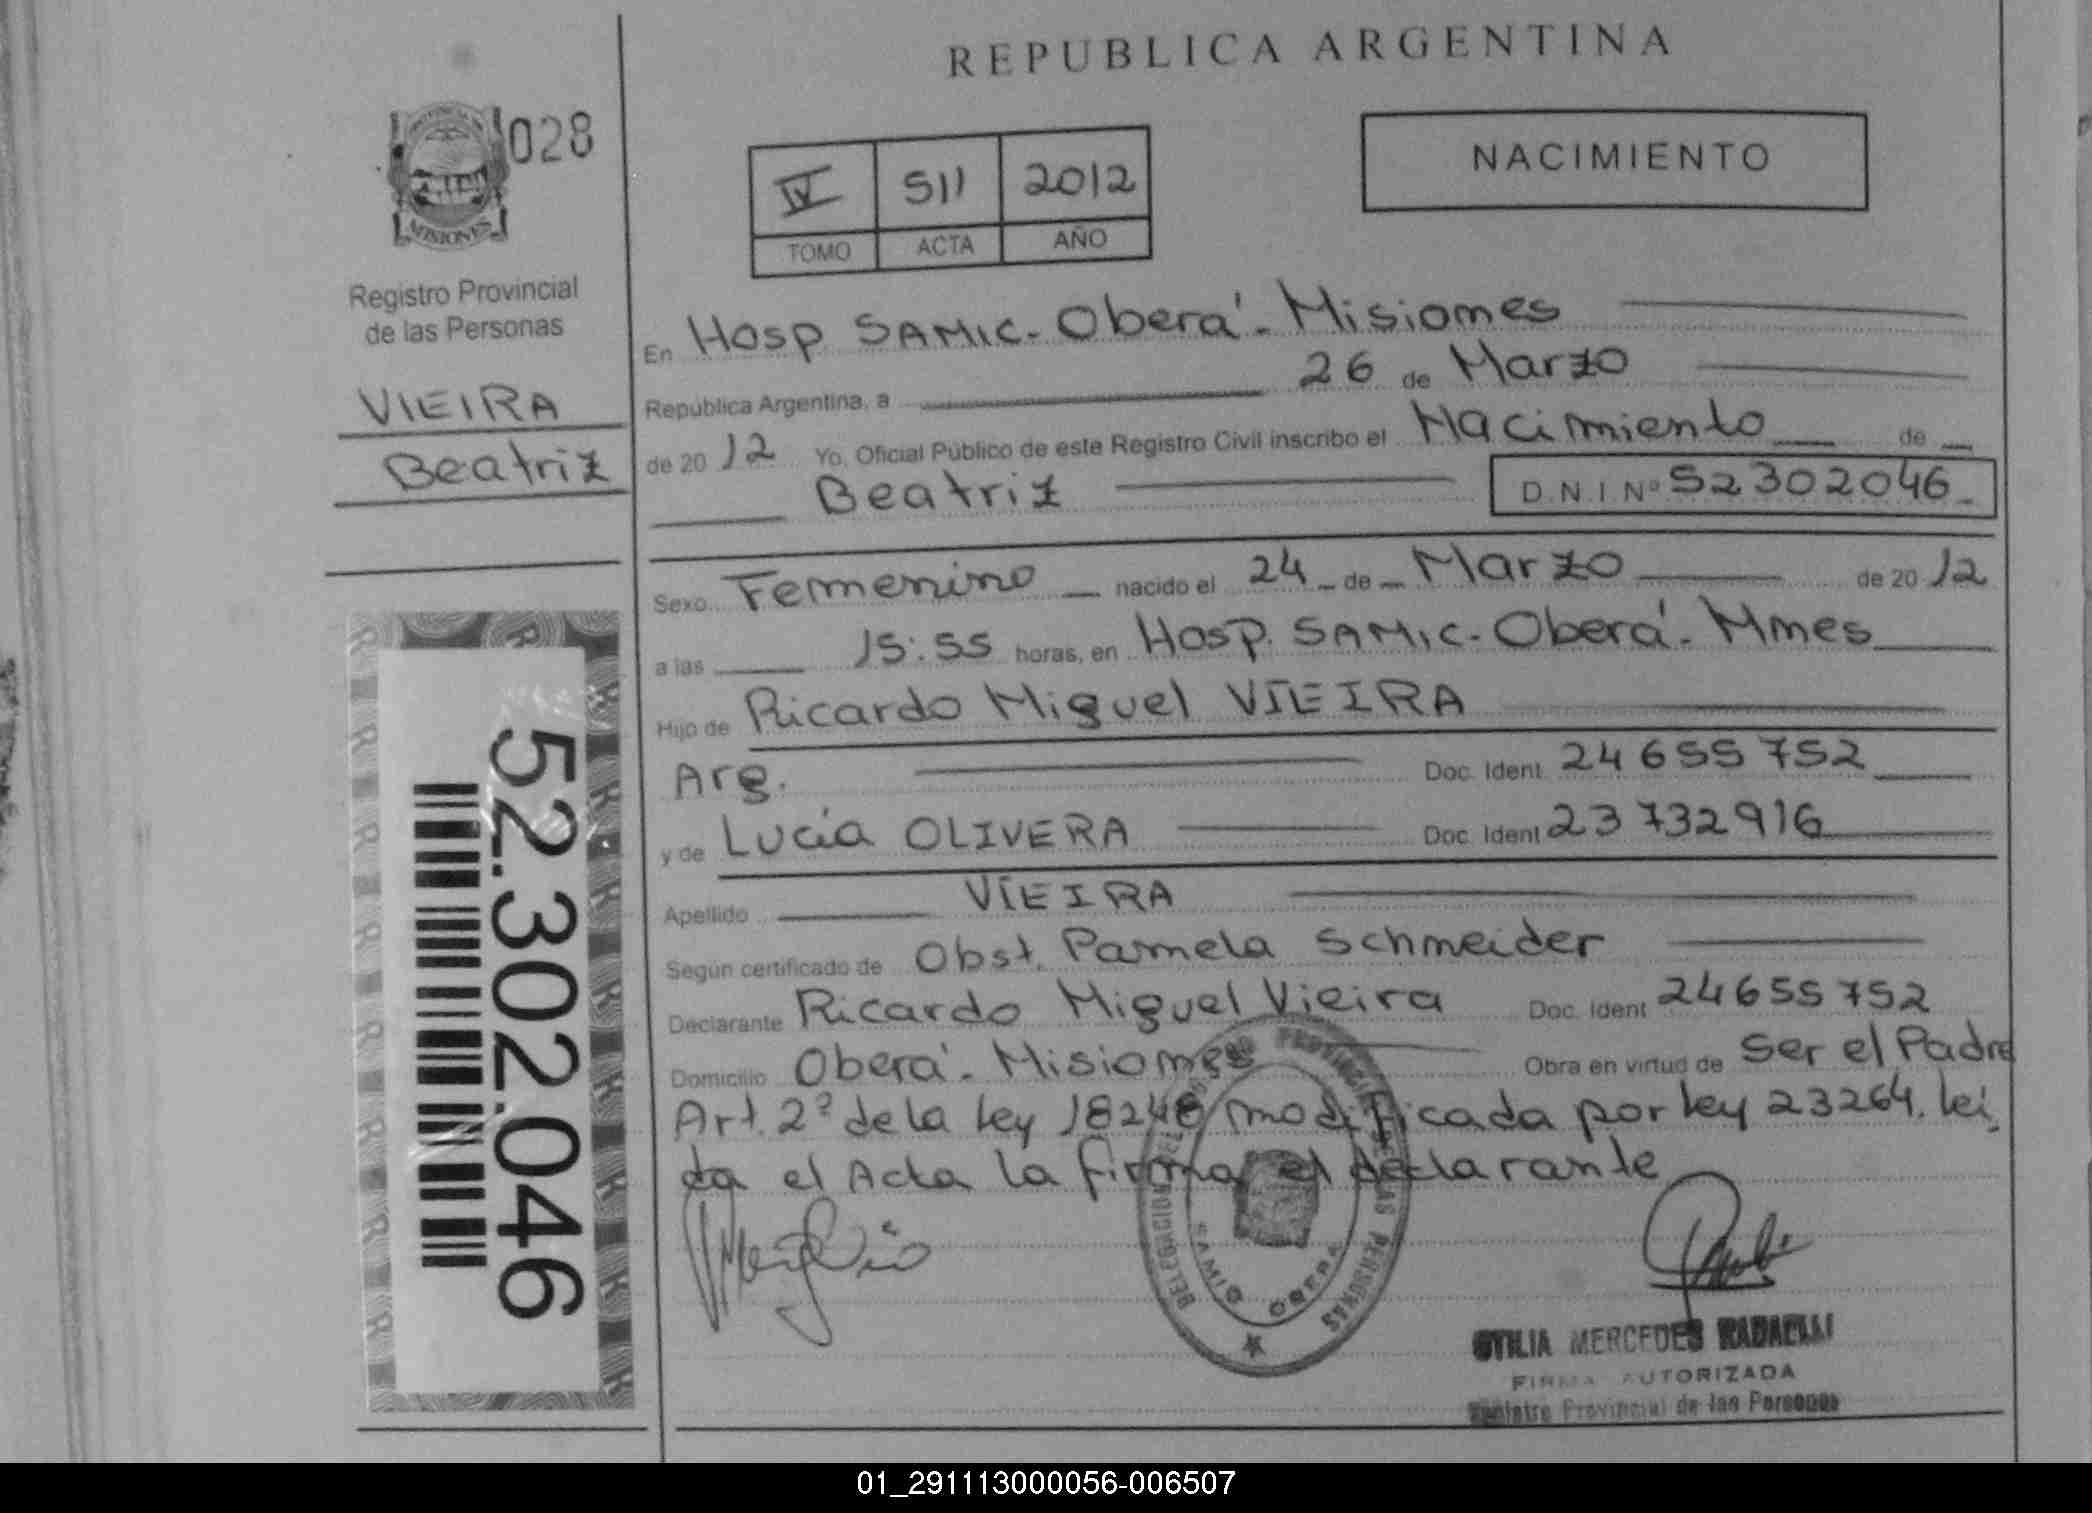 REPUBLICA ARGENTINA
028
MISIONES
Registro Provincial
de las Personas
VIEIRA
Beatriz
52.302.046
NACIMIENTO
IV 511 2012
TOMO ACTA AÑO
En Hosp SAMIC - Oberá - Misiones
República Argentina, a 26 de Marzo
de 2012 Yo, Oficial Público de este Registro Civil inscribo el Nacimiento de
Beatriz D.N.I Nº 52302046
Sexo Femenino nacido el 24 de Marzo de 2012
a las 15:55 horas, en Hosp. SAMIC - Oberá - Mnes
Hijo de Ricardo Miguel VIEIRA
Arg. Doc. Ident. 24655752
y de Lucía OLIVERA Doc. Ident 23732916
Apellido VIEIRA
Según certificado de Obst. Pamela Schneider
Declarante Ricardo Miguel Vieira Doc. Ident 24655752
Domicilio Oberá - Misiones Obra en virtud de Ser el Padre
Art. 2º de la Ley 18248 modificada por ley 23264. lei
da el Acta la firma el declarante
DELEGACION DEL PROVINCIAL DE LAS PERSONAS
SAMIC OBERA
OTILIA MERCEDES RADAELLI
FIRMA AUTORIZADA
Registro Provincial de las Personas
01_291113000056-006507